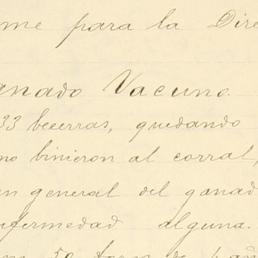 me para la Dire
anado Vacuno.
33 becerras, quedando
no binieron al corral,
n general del ganad
nfermedad alguna.